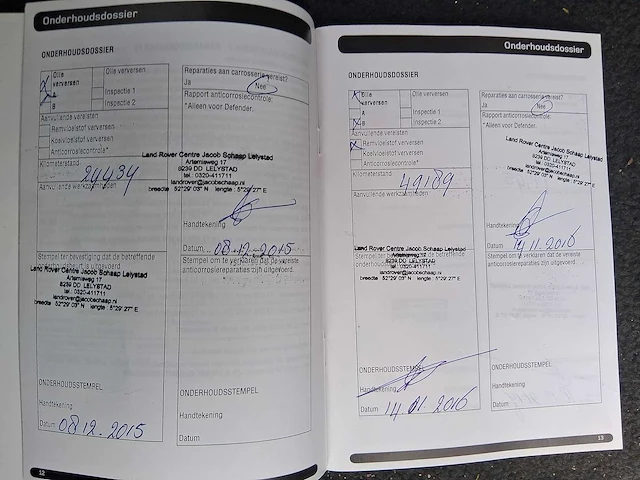 Onderhoudsdossier
ONDERHOUDSDOSSIER
Olie
verversen
A
Inspectie 1
B
Inspectie 2
Aanvullende vereisten
Remvloeistof verversen
Koelvloeistof verversen
Anticorrosiecontrole*
Kilometerstand
24434
Aanvullende werkzaamheden
Stempel ter bevestiging dat de betreffende
Land Rover Centre Jacob Schaap Lelystad
Artemisweg 17
8239 DD LELYSTAD
tel.: 0320-411711
landrover@jacobschaap.nl
breedte 52°29' 03" N lengte : 5°29' 27" E
ONDERHOUDSSTEMPEL
Handtekening
Datum 08.12.2015
Reparaties aan carrosserie vereist?
Ja
Nee
Rapport anticorrosiecontrole:
*Alleen voor Defender.
Land Rover Centre Jacob Schaap Lelystad
Artemisweg 17
8239 DD LELYSTAD
tel.: 0320-411711
landrover@jacobschaap.nl
breedte 52°29' 03" N lengte : 5°29' 27" E
Handtekening
Datum 08.12.2015
Stempel om te verklaren dat de vereiste
anticorrosiereparaties zijn uitgevoerd.
ONDERHOUDSSTEMPEL
Handtekening
Datum
12
Onderhoudsdossier
ONDERHOUDSDOSSIER
Olie
verversen
A
Inspectie 1
B
Inspectie 2
Aanvullende vereisten
Remvloeistof verversen
Koelvloeistof verversen
Anticorrosiecontrole*
Kilometerstand
49189
Aanvullende werkzaamheden
Land Rover Centre Jacob Schaap Lelystad
Artemisweg 17
8239 DD LELYSTAD
tel.: 0320-411711
landrover@jacobschaap.nl
breedte 52°29' 03" N lengte : 5°29' 27" E
ONDERHOUDSSTEMPEL
Handtekening
Datum 14.01.2016
Reparaties aan carrosserie vereist?
Ja
Nee
Rapport anticorrosiecontrole:
*Alleen voor Defender.
Land Rover Centre Jacob Schaap Lelystad
Artemisweg 17
8239 DD LELYSTAD
tel.: 0320-411711
landrover@jacobschaap.nl
breedte 52°29' 03" N lengte : 5°29' 27" E
Handtekening
Datum 14.11.2016
Stempel om te verklaren dat de vereiste
anticorrosiereparaties zijn uitgevoerd.
ONDERHOUDSSTEMPEL
Handtekening
Datum
13